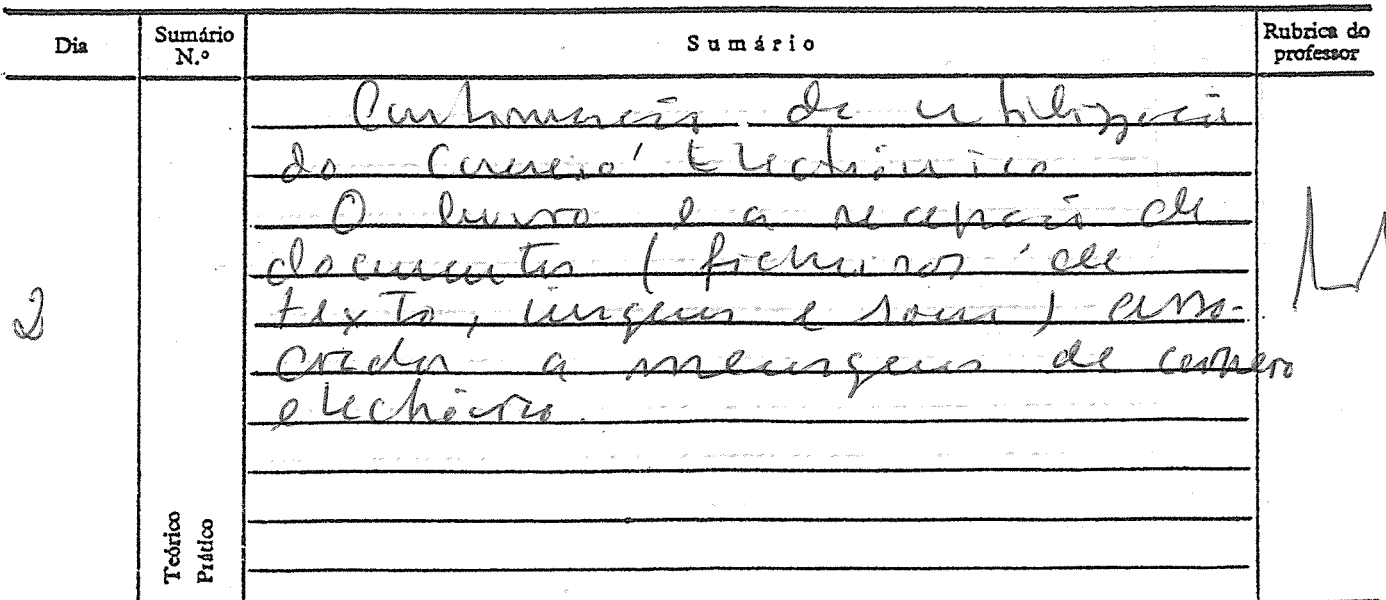 Dia
Sumário N.º
Sumário
Rubrica do professor
Continuação da utilização
do Correio Electrónico
O envio e a recepção de
documentos (ficheiros de
texto, imagem e som) asso-
ciados a mensagens de correio
electrónico.
2
Teórico
Prático